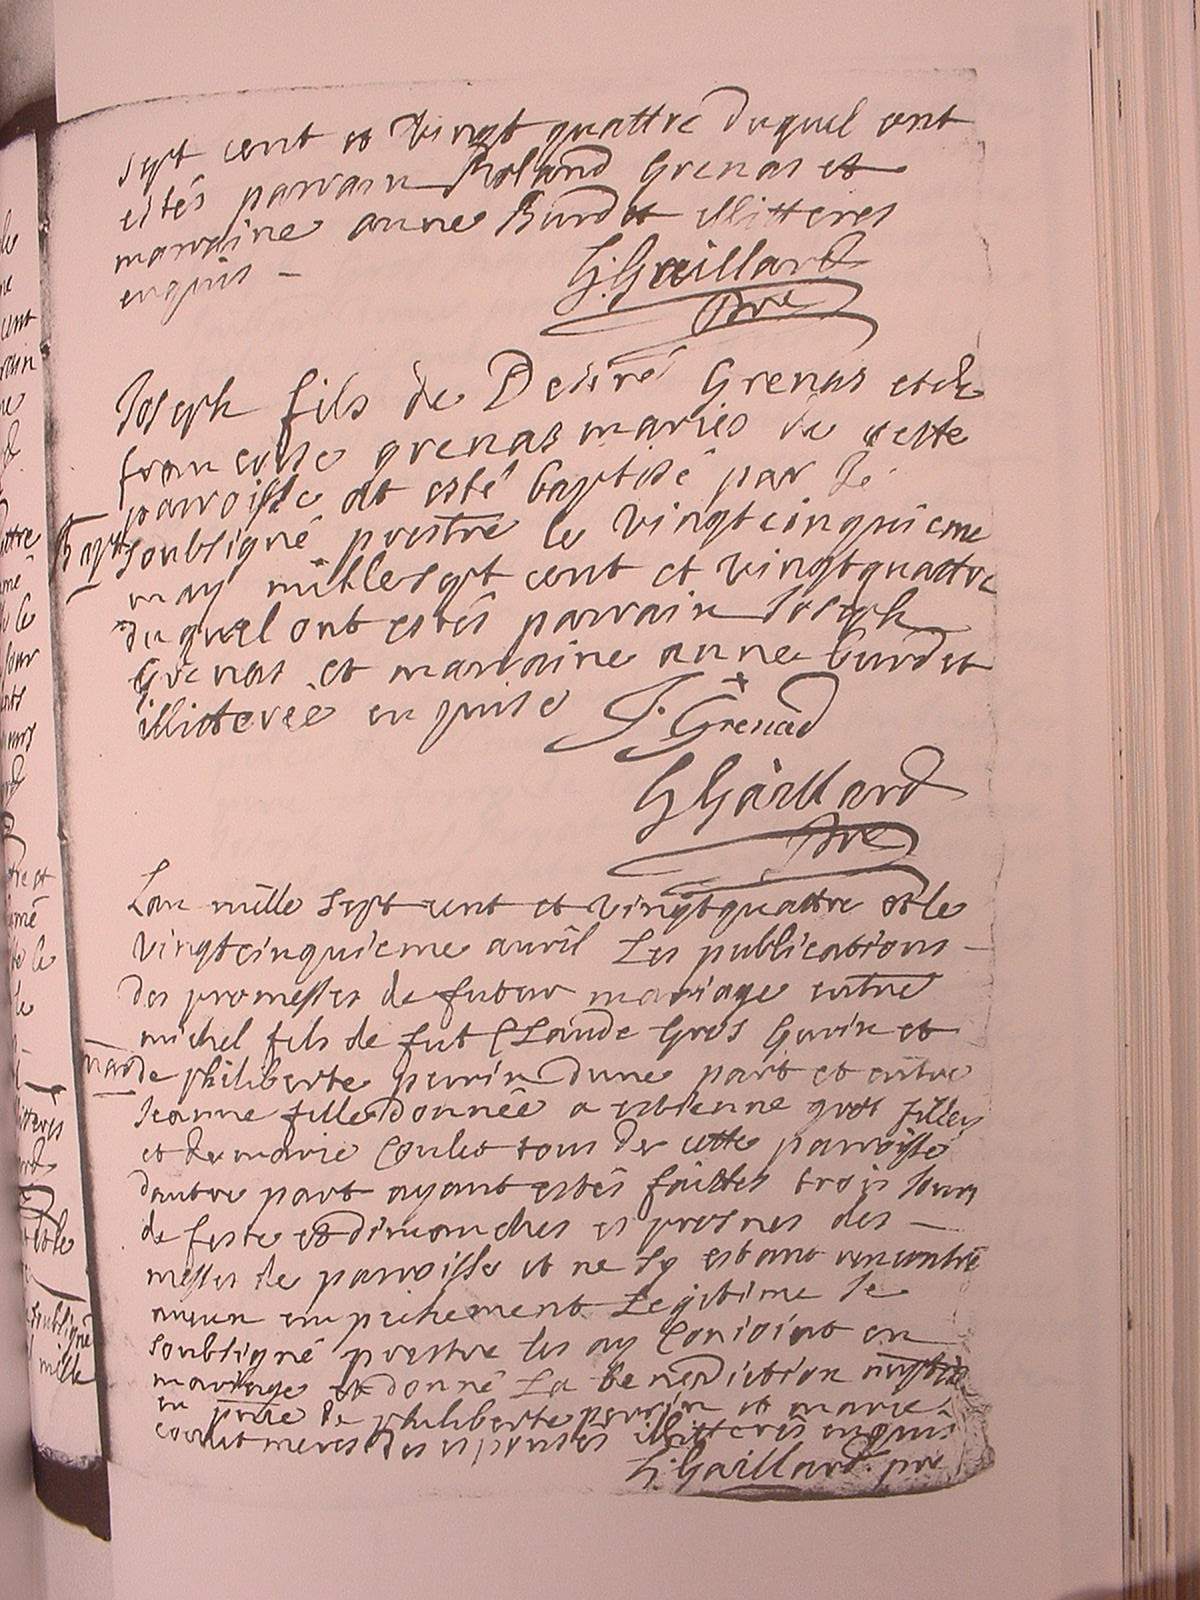 sept cent et vingt quattre duquel ont
estés parrain Roland Grenas et
marraine anne Burdet illitteres
enquis -
G. Gaillard
pbre
Joseph fils de Desiré Grenas et de
francoise grenas mariés de cette
parroisse at esté baptisé par le
Bapt soubsigné prestre le vingtcinquieme
may mille sept cent et vingtquattre
duquel ont estés parrain Joseph
Grenas et marraine anne burdet
illitterée enquise J. Grenad
G Gaillard
pbre
Lan mille sept cent et vingtquattre et le
vingtcinquieme auril Les publications -
des promesses de futur mariage entre
michel fils de fut Claude Gros Gurin et
mar de philiberte perrin dune part et entre
Jeanne fille donnée a estienne gros filley
et de marie Coulet tous de cette parroisse
dautre part ayant estés faittes trois Jours
de feste et dimanches es prosnes des -
messes de parroisse et ne sy estant rencontré
aucun empechement Legitime Je
soubsigné prestre les ay Conioint en
mariage et donné La benediction nuptia
en pnce de philiberte perrin et marie
coulet meres des espouses illitterés enquis
G. Gaillard. pre